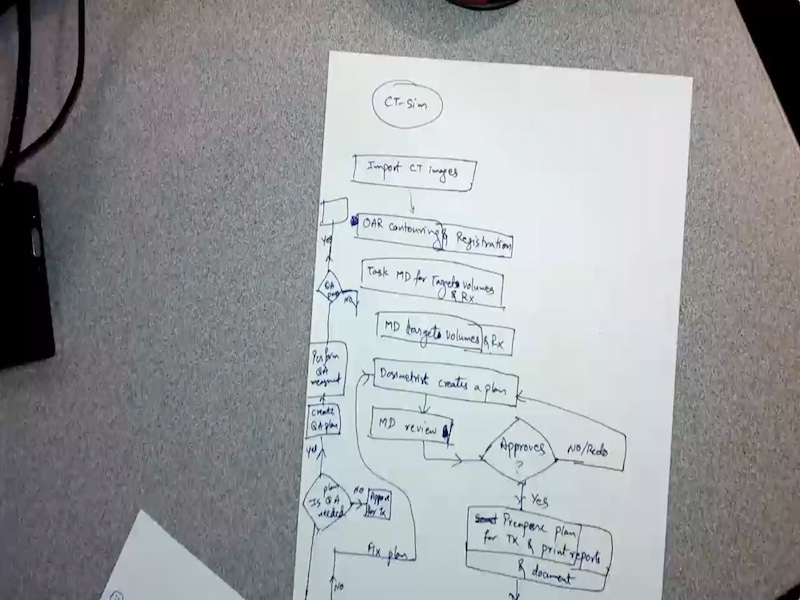 CT-Sim
Import CT images
OAR Contouring & Registration
Task MD for Targets volumes
& Rx
MD targets volumes & Rx
Dosimetrist creates a plan
MD review
Approves
?
NO/Redo
Yes
Prempore plan
for TX & print reports
& document
Yes
QA
pass
NO
Perform
QA
Create
QA plan
Yes
plan
Is QA
needed
NO
for Tx
Fix plan
NO